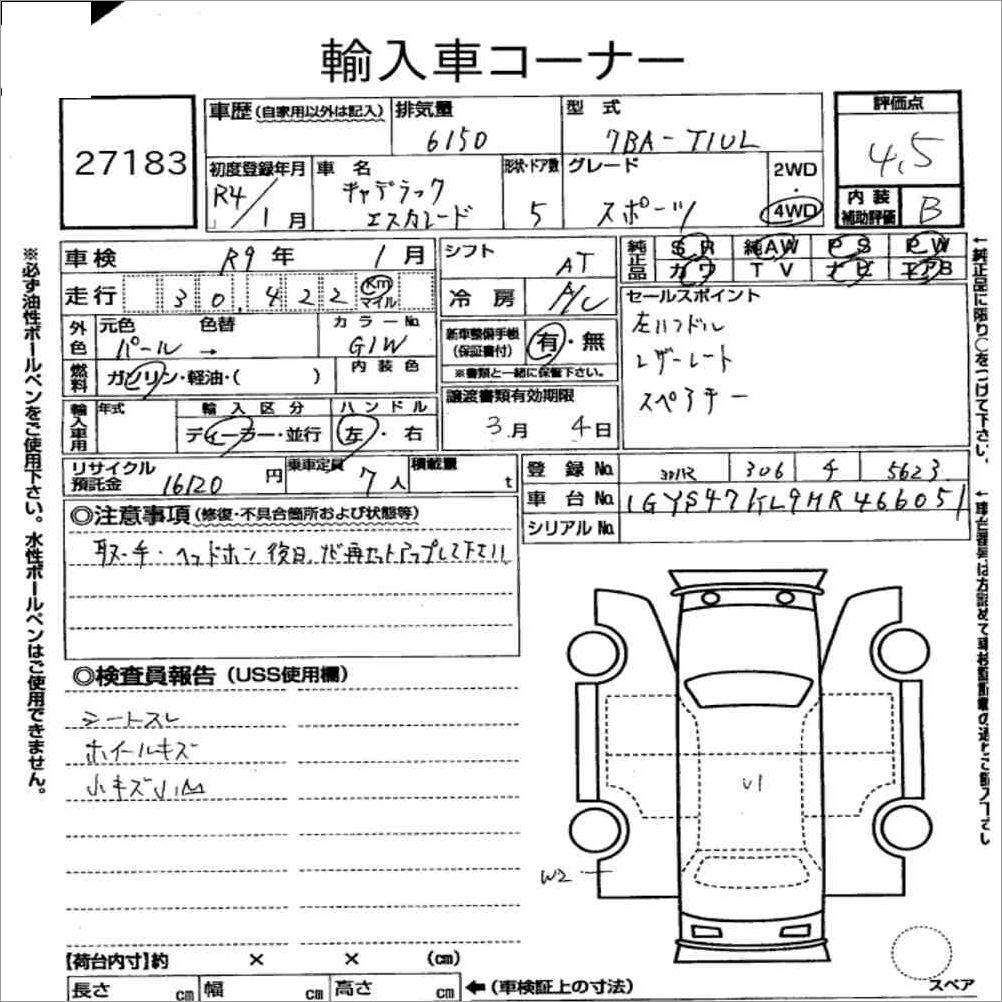 輸入車コーナー
27183
車歴(自家用以外は記入) 排気量 6150 型式 7BA-T1UL
評価点 4.5
初度登録年月 R4/1月 車名 キャデラック エスカレード 形状・ドア数 5 グレード スポーツ 2WD・4WD
内装補助評価 B
車検 R9年 1月 シフト AT
純正品 SR 純AW PS PW
カワ TV ナビ エアB
走行 30,422 Km マイル 冷房 A/C
セールスポイント
左ハンドル
レザーシート
スペアキー
外色 元色 パール 色替 → カラーNo. G1W
新車整備手帳(保証書付) 有・無
※書類と一緒に保管下さい。
燃料 ガソリン・軽油・( ) 内装色
譲渡書類有効期限 3月 4日
輸入車用 年式 輸入区分 ディーラー・並行 ハンドル 左・右
リサイクル預託金 16120円 乗車定員 7人 積載量 t
登録No. 306 5623
車台No. 1GYS47KL9MR466051
シリアルNo.
◎注意事項(修復・不具合箇所および状態等)
取・手・ヘッドホン後日,ナビ再セットアップして下さい
◎検査員報告(USS使用欄)
シートスレ
ホイールキズ
小キズ小凹
U1
W2
スペア
【荷台内寸】約 × × (cm)
長さ cm 幅 cm 高さ cm ←(車検証上の寸法)
※必ず油性ボールペンをご使用下さい。水性ボールペンはご使用できません。
←純正品に限り○をつけて下さい。